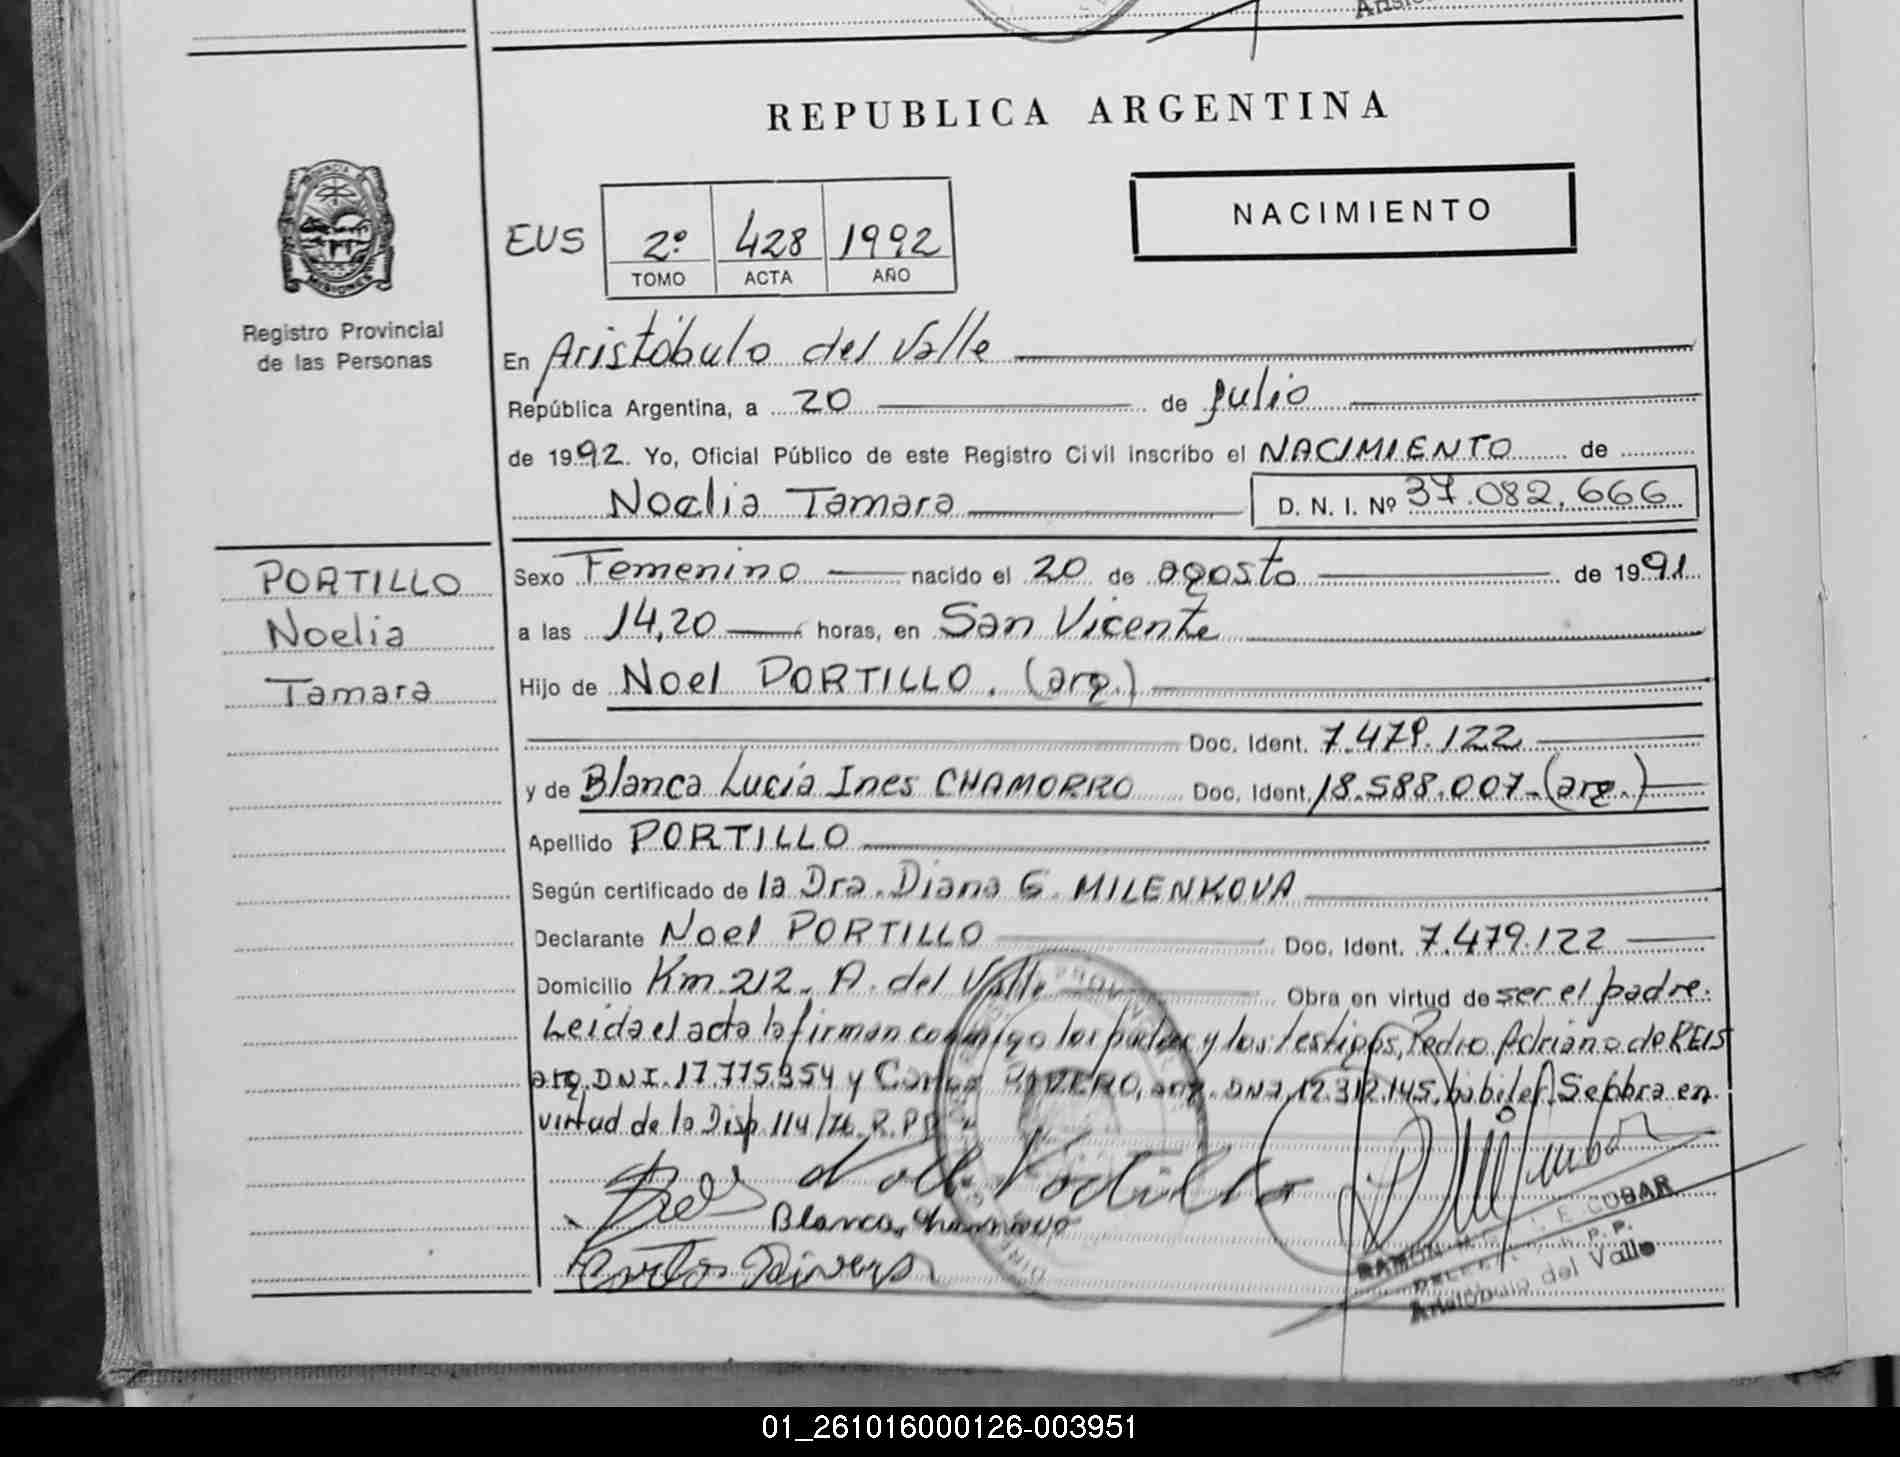 REPUBLICA ARGENTINA
NACIMIENTO
EUS 2º 428 1992
TOMO ACTA AÑO
PROVINCIA
MISIONES
Registro Provincial
de las Personas
En Aristóbulo del Valle
República Argentina, a 20 de julio
de 1992. Yo, Oficial Público de este Registro Civil inscribo el NACIMIENTO de
Noelia Tamara D. N. I. Nº 37.082.666
PORTILLO
Noelia
Tamara
Sexo Femenino nacido el 20 de agosto de 1991
a las 14,20 horas, en San Vicente
Hijo de Noel PORTILLO. (arg.)
Doc. Ident. 7.479.122
y de Blanca Lucía Ines CHAMORRO Doc. Ident. 18.588.007-(arg.)
Apellido PORTILLO
Según certificado de la Dra. Diana G. MILENKOVA
Declarante Noel PORTILLO Doc. Ident. 7.479.122
Domicilio Km 212. A. del Valle Obra en virtud de ser el padre.
Leida el acta la firman conmigo los padres y los testigos, Pedro Adriano de REIS
arg. DNI. 17.775.354 y Carlos arg. DNI, 12.312.145, hábiles. Se obra en
virtud de la Disp. 114/76. R.P.P.
Noel Portillo
Blanca Chamorro
Carlos
RAMON ESCOBAR
R. P. P.
Aristóbulo del Valle
01_261016000126-003951